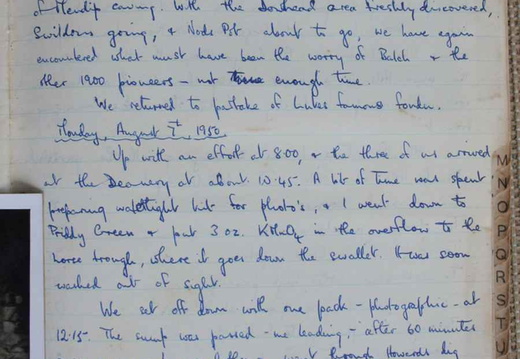 of Mendip caving. With the Dowhead area freshly discovered,
Swildons going, & Node Pot about to go, we have again
encountered what must have been the worry of Balch & the
other 1900 pioneers - not enough time.
We returned to partake of Lukes famous fondu.
Monday, August 7th 1950
Up with an effort at 8.00, & the three of us arrived
at the Deanery at about 10.45. A bit of time was spent
preparing watertight kit for photo's, & I went down to
Priddy Green & put 3 oz. KMnO4 in the overflow to the
horse trough, where it goes down the swallet. It was soon
washed out of sight.
We set off down with one pack - photographic - at
12.15. The sump was passed - me leading, - after 60 minutes
went through Howards dig
M
N
O
P
Q
R
S
T
U